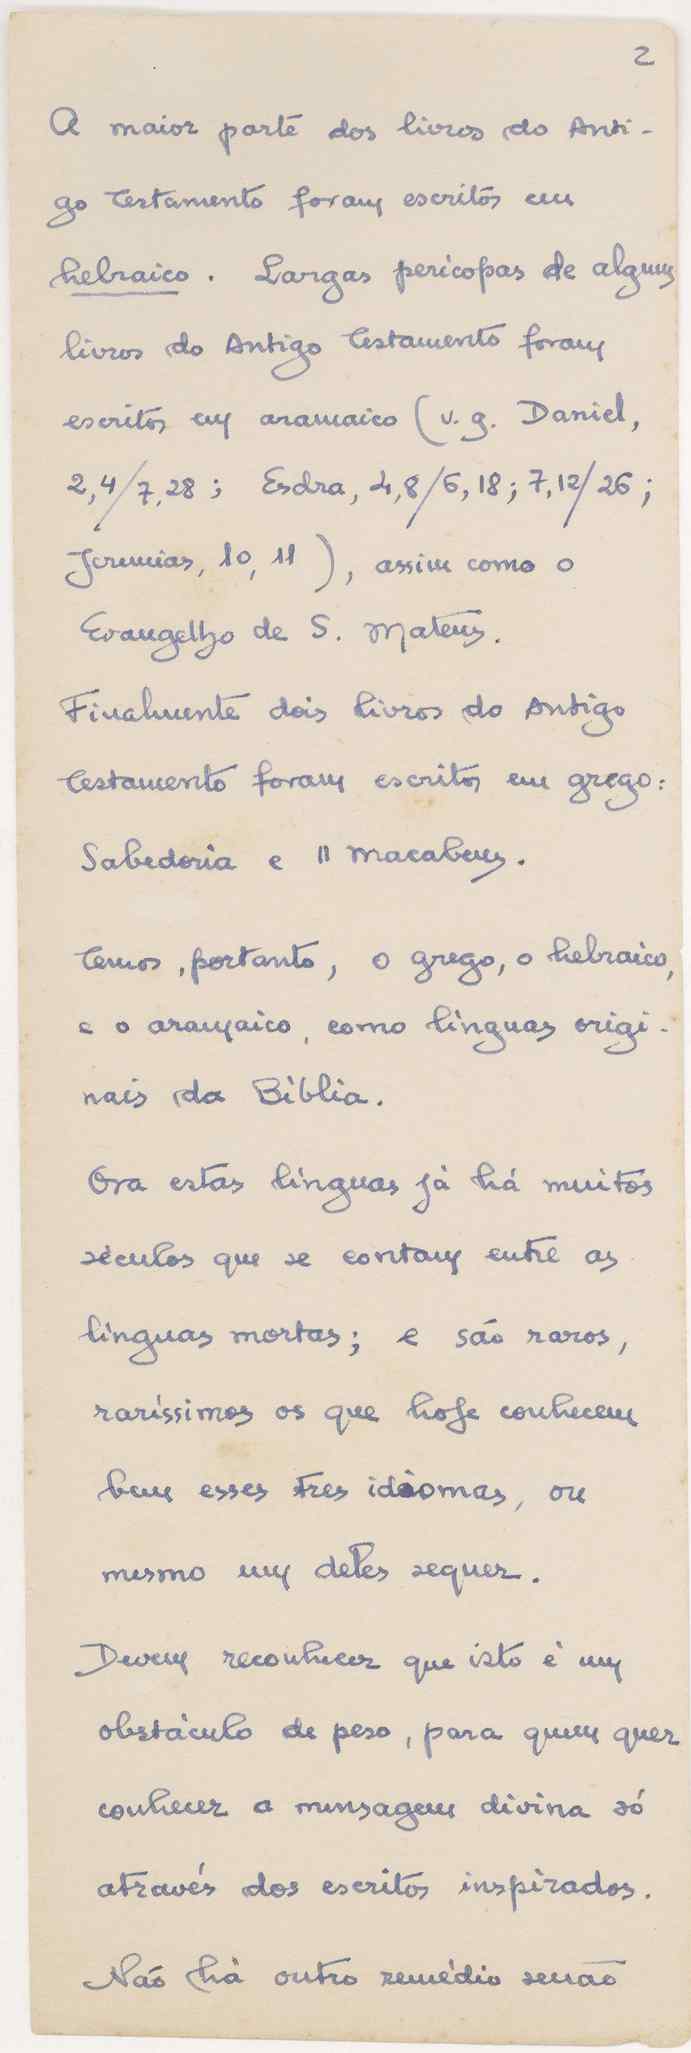 2
A maior parte dos livros do Anti-
go Testamento foram escritos em
hebraico. Largas pericopas de alguns
livros do Antigo Testamento foram
escritos em aramaico (v. g. Daniel,
2,4/7,28; Esdra, 4,8/6,18; 7,12/26;
Jeremias, 10, 11), assim como o
Evangelho de S. Mateus.
Finalmente dois livros do Antigo
Testamento foram escritos em grego:
Sabedoria e II Macabeus.
Temos, portanto, o grego, o hebraico,
e o aramaico, como línguas origi-
nais da Bíblia.
Ora estas línguas já há muitos
séculos que se contam entre as
línguas mortas; e são raros,
raríssimos os que hoje conhecem
bem esses tres idiomas, ou
mesmo um deles sequer.
Devem reconhecer que isto é um
obstáculo de peso, para quem quer
conhecer a mensagem divina só
através dos escritos inspirados.
Não há outro remédio senão